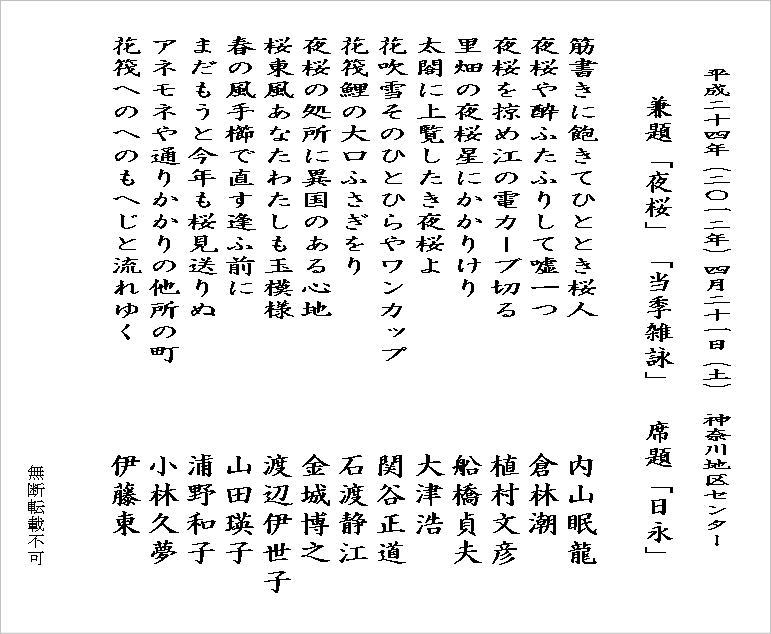 平成二十四年(二〇一二年)四月二十一日(土) 神奈川地区センター
兼題「夜桜」「当季雑詠」 席題「日永」
筋書きに飽きてひととき桜人 内山眠龍
夜桜や酔ふたふりして嘘一つ 倉林潮
夜桜を掠め江の電カーブ切る 植村文彦
里畑の夜桜星にかかりけり 船橋貞夫
太閤に上覧したき夜桜よ 大津浩
花吹雪そのひとひらやワンカップ 関谷正道
花筏鯉の大口ふさぎをり 石渡静江
夜桜の処所に異国のある心地 金城博之
桜東風あなたわたしも玉模様 渡辺伊世子
春の風手櫛で直す逢ふ前に 山田瑛子
まだもうと今年も桜見送りぬ 浦野和子
アネモネや通りかかりの他所の町 小林久夢
花筏へのへのもへじと流れゆく 伊藤東
無断転載不可